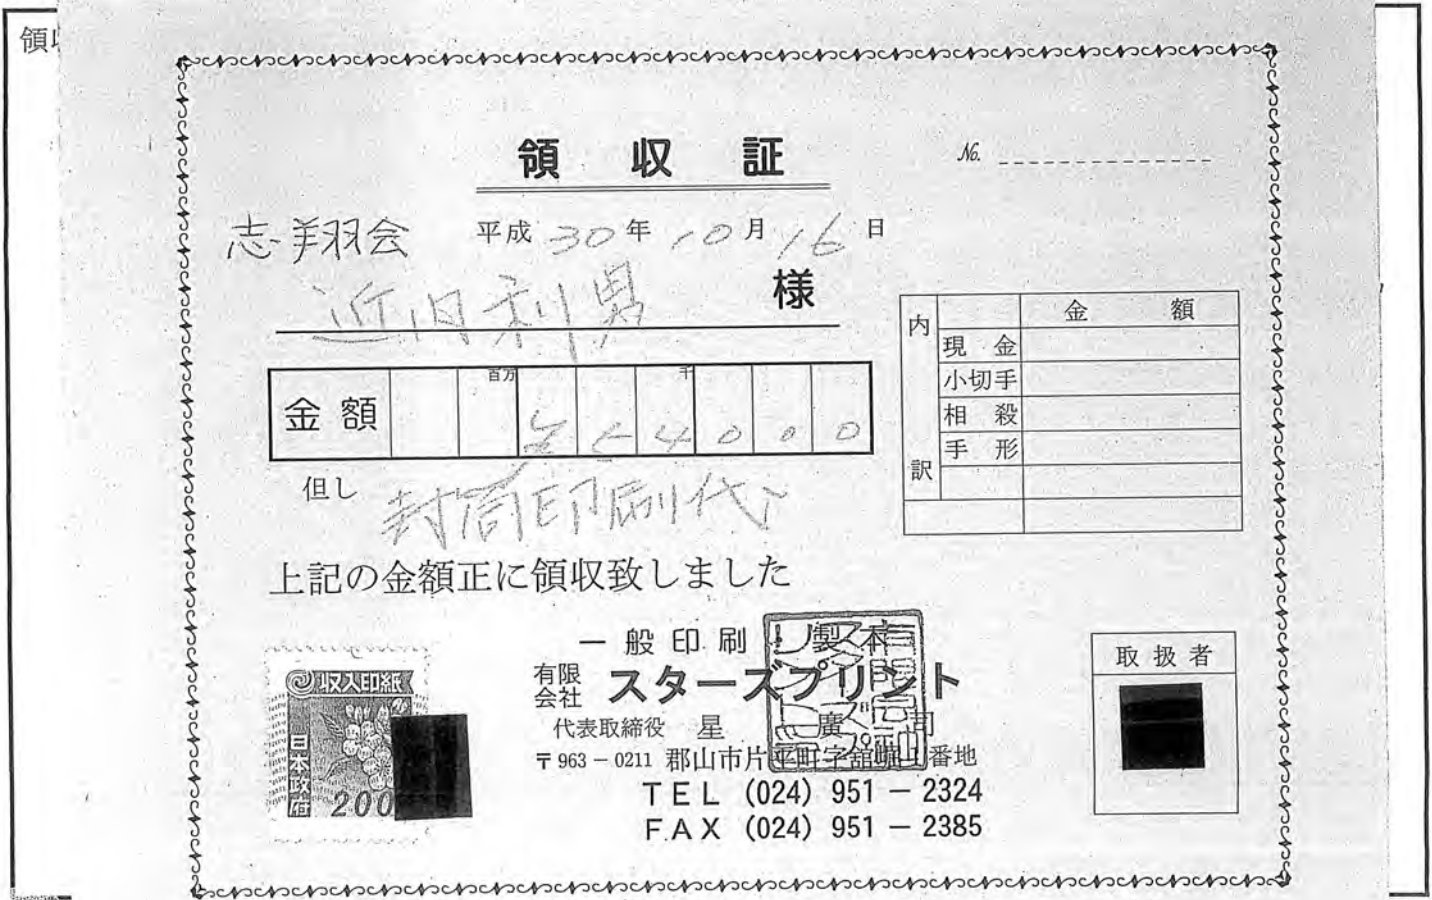 領収
領収証
No.
志翔会
平成 30 年 10 月 16 日
近内利男 様
金額 百万 千 5 4 0 0 0
但し 封筒印刷代
上記の金額正に領収致しました
内訳 金額
現金
小切手
相殺
手形
収入印紙
日本政府
200
一般印刷 製本
有限会社 スターズプリント
代表取締役 星 廣司
〒963-0211 郡山市片平町字舘 番地
TEL (024) 951-2324
FAX (024) 951-2385
取扱者